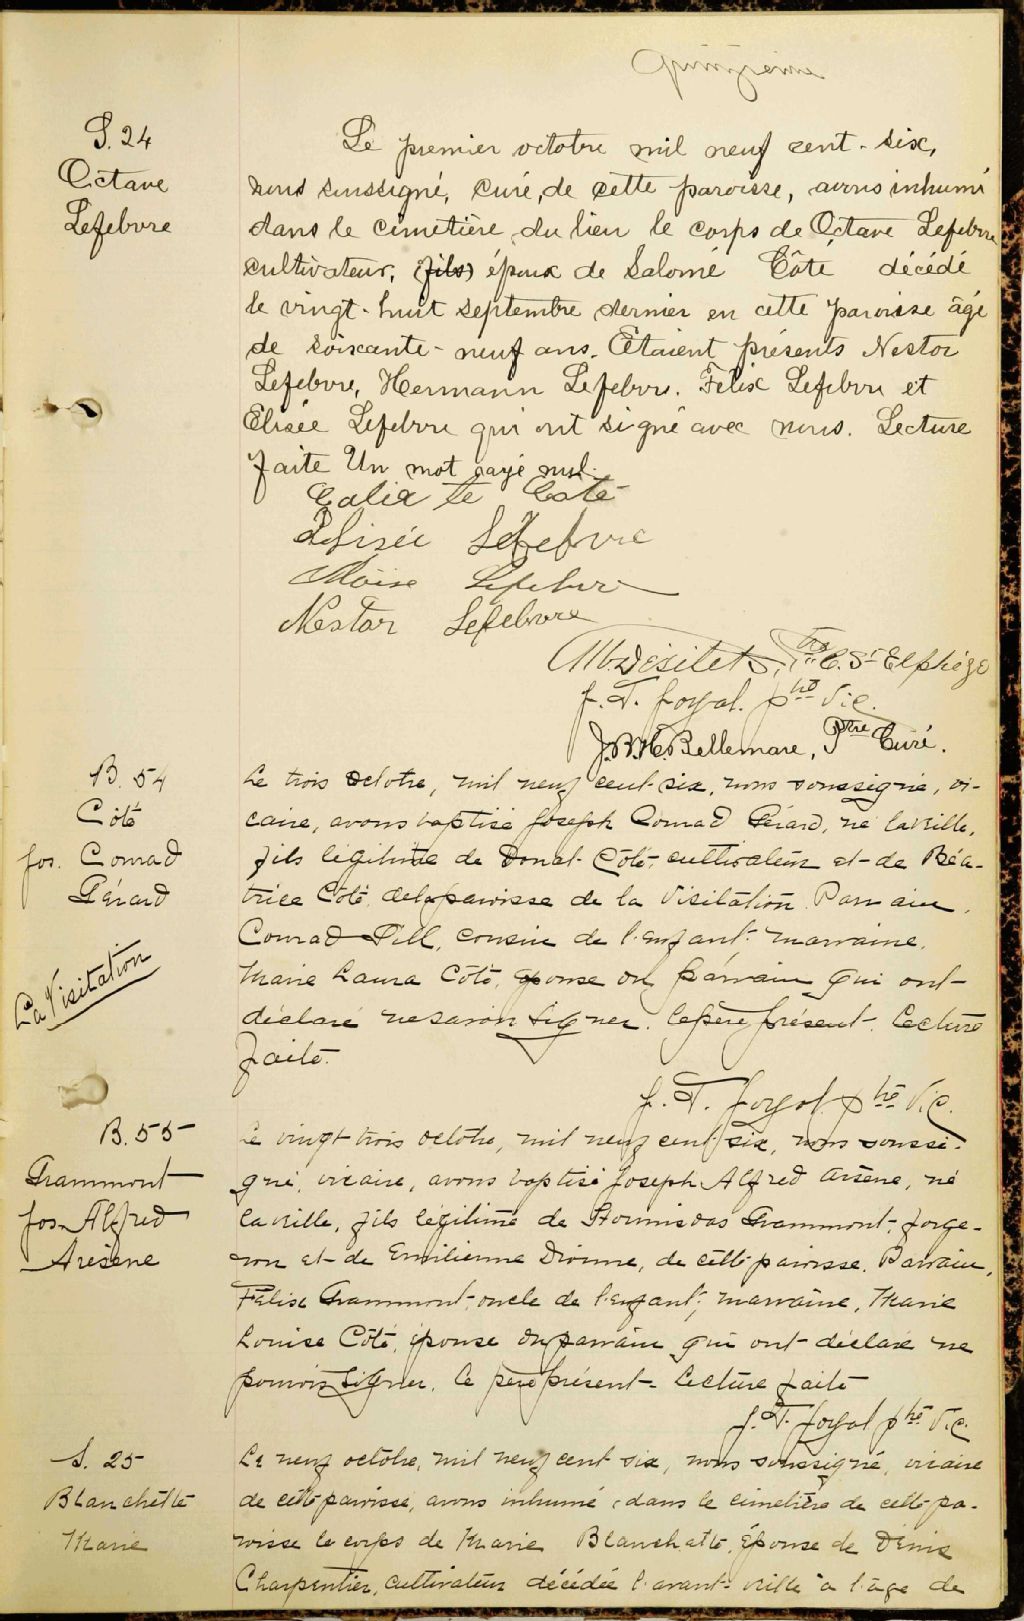 Quinzième
S. 24
Octave
Lefebvre
Le premier octobre mil neuf cent-six,
nous soussigné, curé, de cette paroisse, avons inhumé
dans le cimetière du lieu le corps de Octave Lefebvre
cultivateur, (fils) époux de Salomé Côté décédé
le vingt-huit septembre dernier en cette paroisse âgé
de soixante-neuf ans. Etaient présents Nestor
Lefebvre, Hermann Lefebvre. Félix Lefebvre et
Elisée Lefebvre qui ont signé avec nous. Lecture
faite Un mot rayé nul.
Calixte Coté
Elisée Lefebvre
Moise Lefebvre
Nestor Lefebvre
Désilets, Ptre C. St Elphége
J. T. Joyal. ptre Vic.
J.B.H.C. Bellemare, Ptre Curé.
B. 54
Côté
Jos. Conrad
Gérard
La Visitation
Le trois octobre, mil neuf cent six, nous soussigné, vi-
caire, avons baptisé Joseph Conrad Gérard, né la veille,
fils légitime de Donat Côté, cultivateur et de Béa-
trice Côté, de la paroisse de la Visitation. Parrain,
Conrad, cousin de l'enfant: marraine,
Marie Laura Côté, épouse du parrain qui ont
déclaré ne savoir signer. Le père présent. Lecture
faite.
J. T. Joyal ptre Vic.
B. 55
Grammont
Jos. Alfred
Arsène
Le vingt trois octobre, mil neuf cent six, nous soussi-
gné, vicaire, avons baptisé Joseph Alfred Arsène, né
la veille, fils légitime de Grammont, forge-
ron et de Emilienne Dionne, de cette paroisse. Parrain,
Félix Grammont, oncle de l'enfant; marraine, Marie
Louise Côté, épouse du parrain qui ont déclaré ne
pouvoir signer. Le père présent. Lecture faite
J. T. Joyal ptre Vic.
S. 25
Blanchette
Marie
Le neuf octobre, mil neuf cent six, nous soussigné, vicaire
de cette paroisse, avons inhumé dans le cimetière de cette pa-
roisse le corps de Marie Blanchette, épouse de Denis
Charpentier, cultivateur décédée l'avant-veille à l'âge de